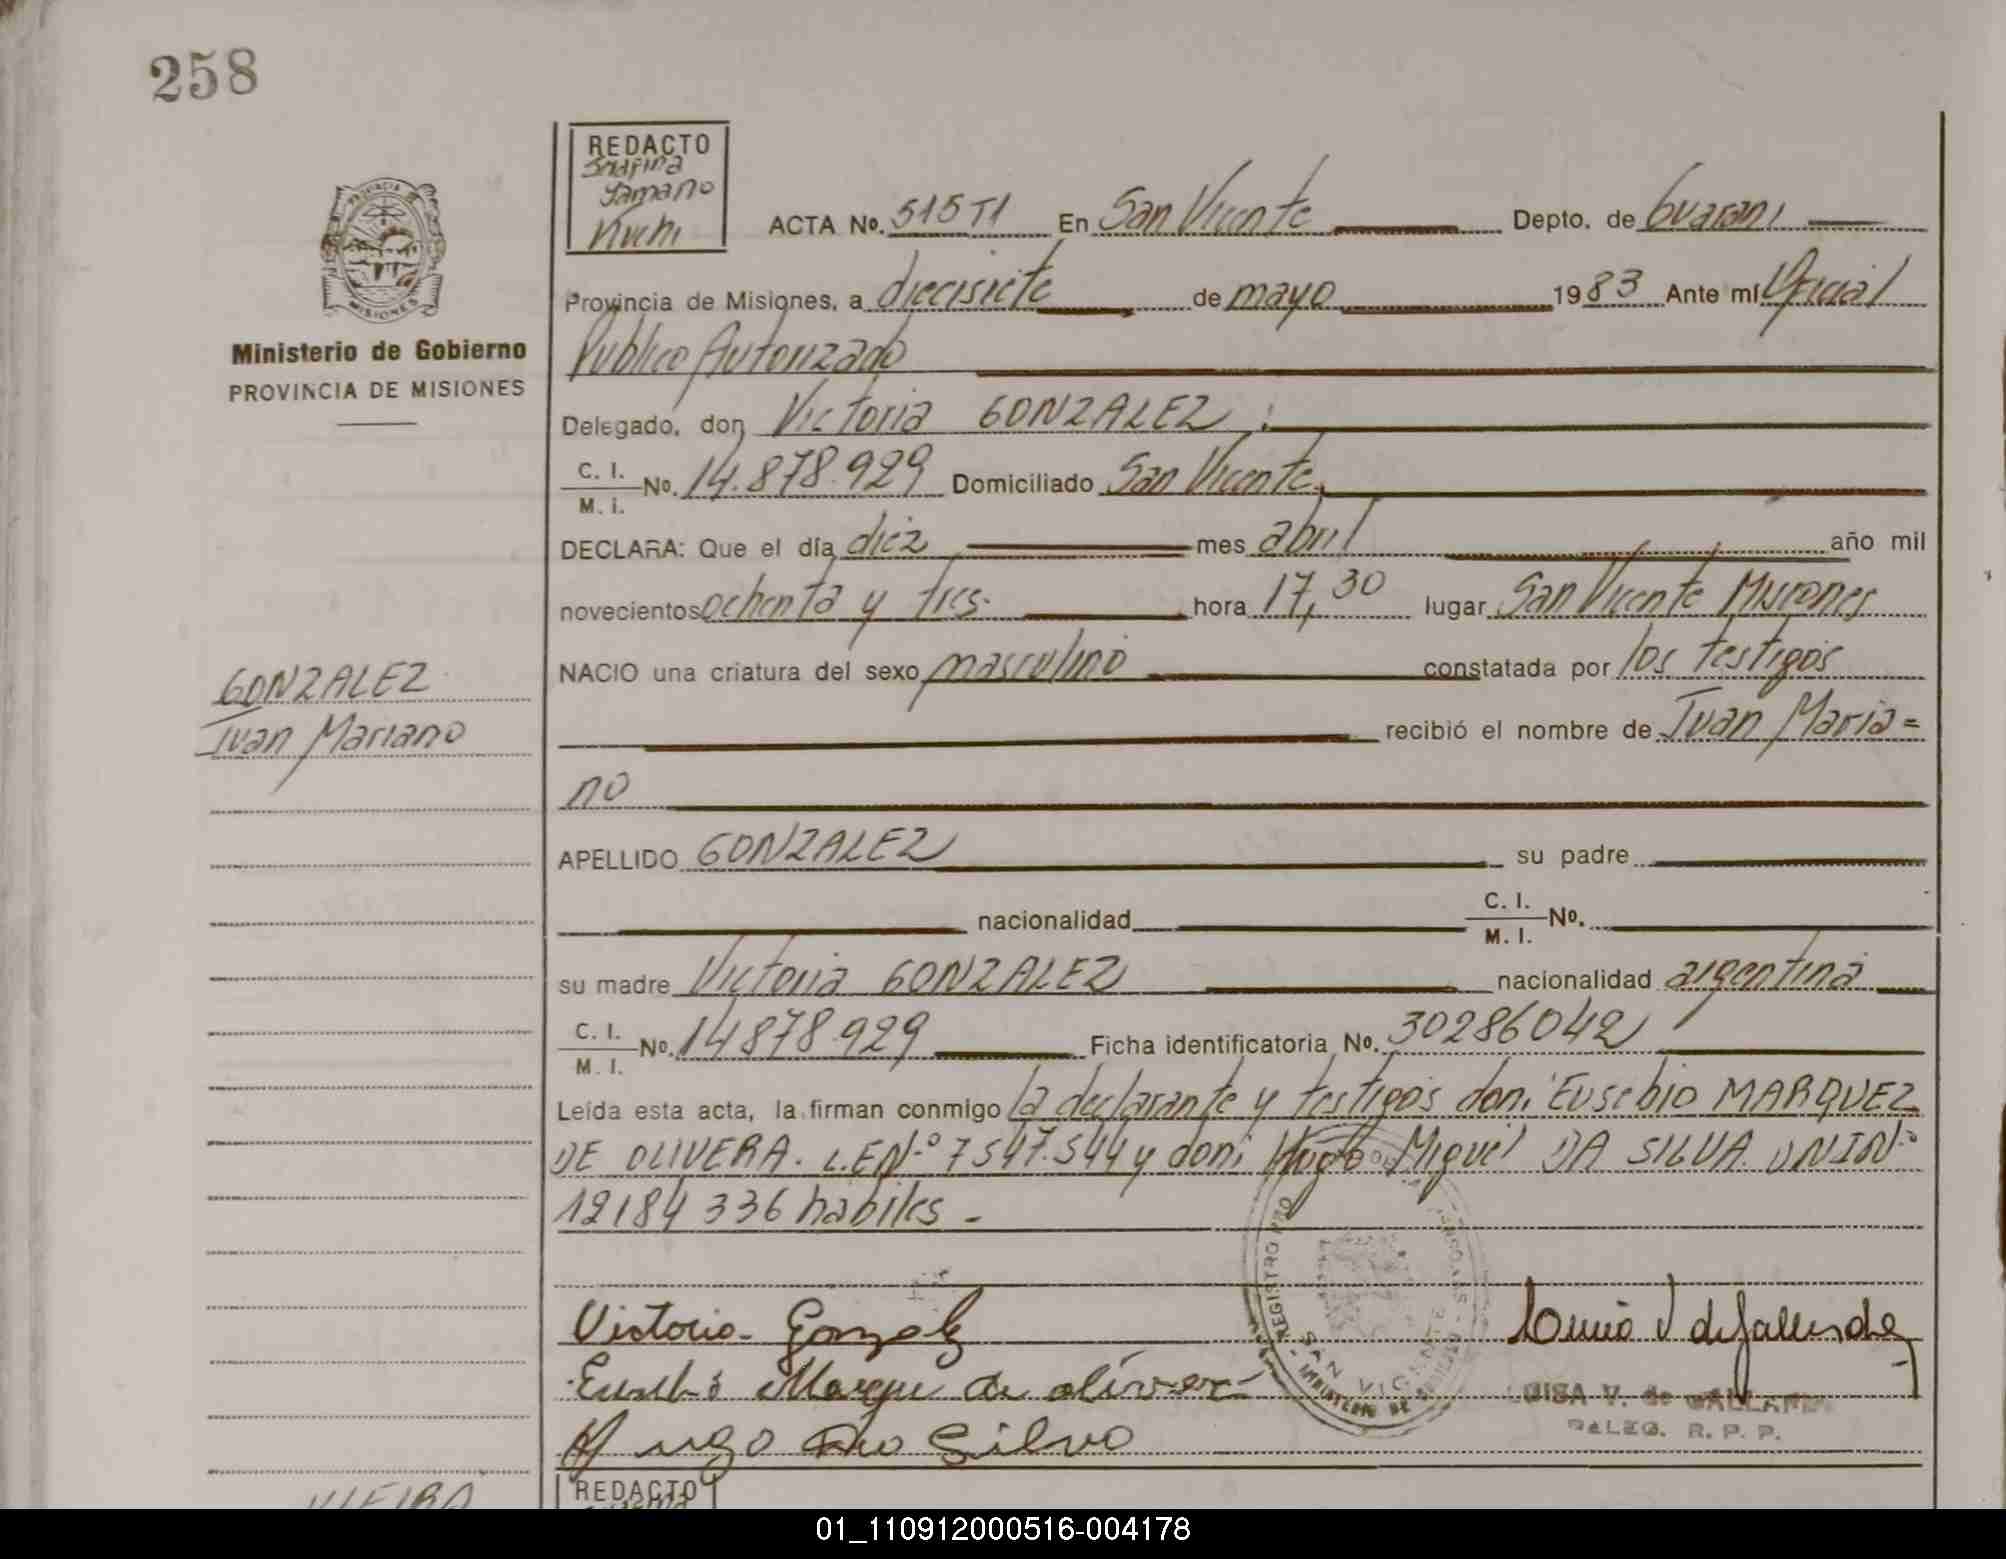 258
REDACTO
Yamano
Kuchi
ACTA No. 515 T1 En San Vicente Depto. de Guarani
PROVINCIA
MISIONES
Provincia de Misiones, a diecisiete de mayo 1983 Ante mí Oficial
Ministerio de Gobierno
PROVINCIA DE MISIONES
Publico Autorizado
Delegado, don Victoria GONZALEZ :
C. I.
M. I. No. 14.878.929 Domiciliado San Vicente
DECLARA: Que el día diez mes abril año mil
novecientos ochenta y tres. hora 17,30 lugar San Vicente Misiones
NACIO una criatura del sexo masculino constatada por los testigos
GONZALEZ
Juan Mariano
recibió el nombre de Juan Maria=
no
APELLIDO GONZALEZ su padre
nacionalidad C. I.
M. I. No.
su madre Victoria GONZALEZ nacionalidad argentina
C. I.
M. I. No. 14878.929 Ficha identificatoria No. 30286042
Leída esta acta, la firman conmigo la declarante y testigos don: Eusebio MARQUEZ
DE OLIVERA. L.E.N.º 7547.544 y don: Hugo Miguel DA SILVA. DNIN.º
12184336 habiles -
REGISTRO PRO
SAN VICENTE
MINISTERIO DE GOBIERNO
Victoria Gonzalez
Marque de olivera
LUISA V. de GALLARDO
DELEG. R. P. P.
Hugo Da Silva
REDACTO
VIEIRA
01_110912000516-004178